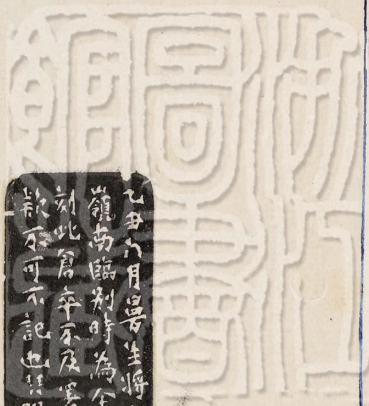 浙江圖書館
乙丑六月㬎生將
嶺南臨別時為余
刻此倉卒不及
款不可不記也